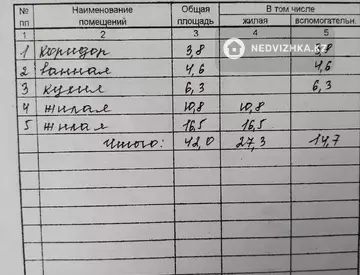 № пп Наименование помещений Общая площадь В том числе
жилая вспомогательн.
1 2 3 4 5
1 коридор 3,8 3,8
2 ванная 4,6 4,6
3 кухня 6,3 6,3
4 жилая 10,8 10,8
5 жилая 16,5 16,5
Итого: 42,0 27,3 14,7
NEDVIZHKA.KZ